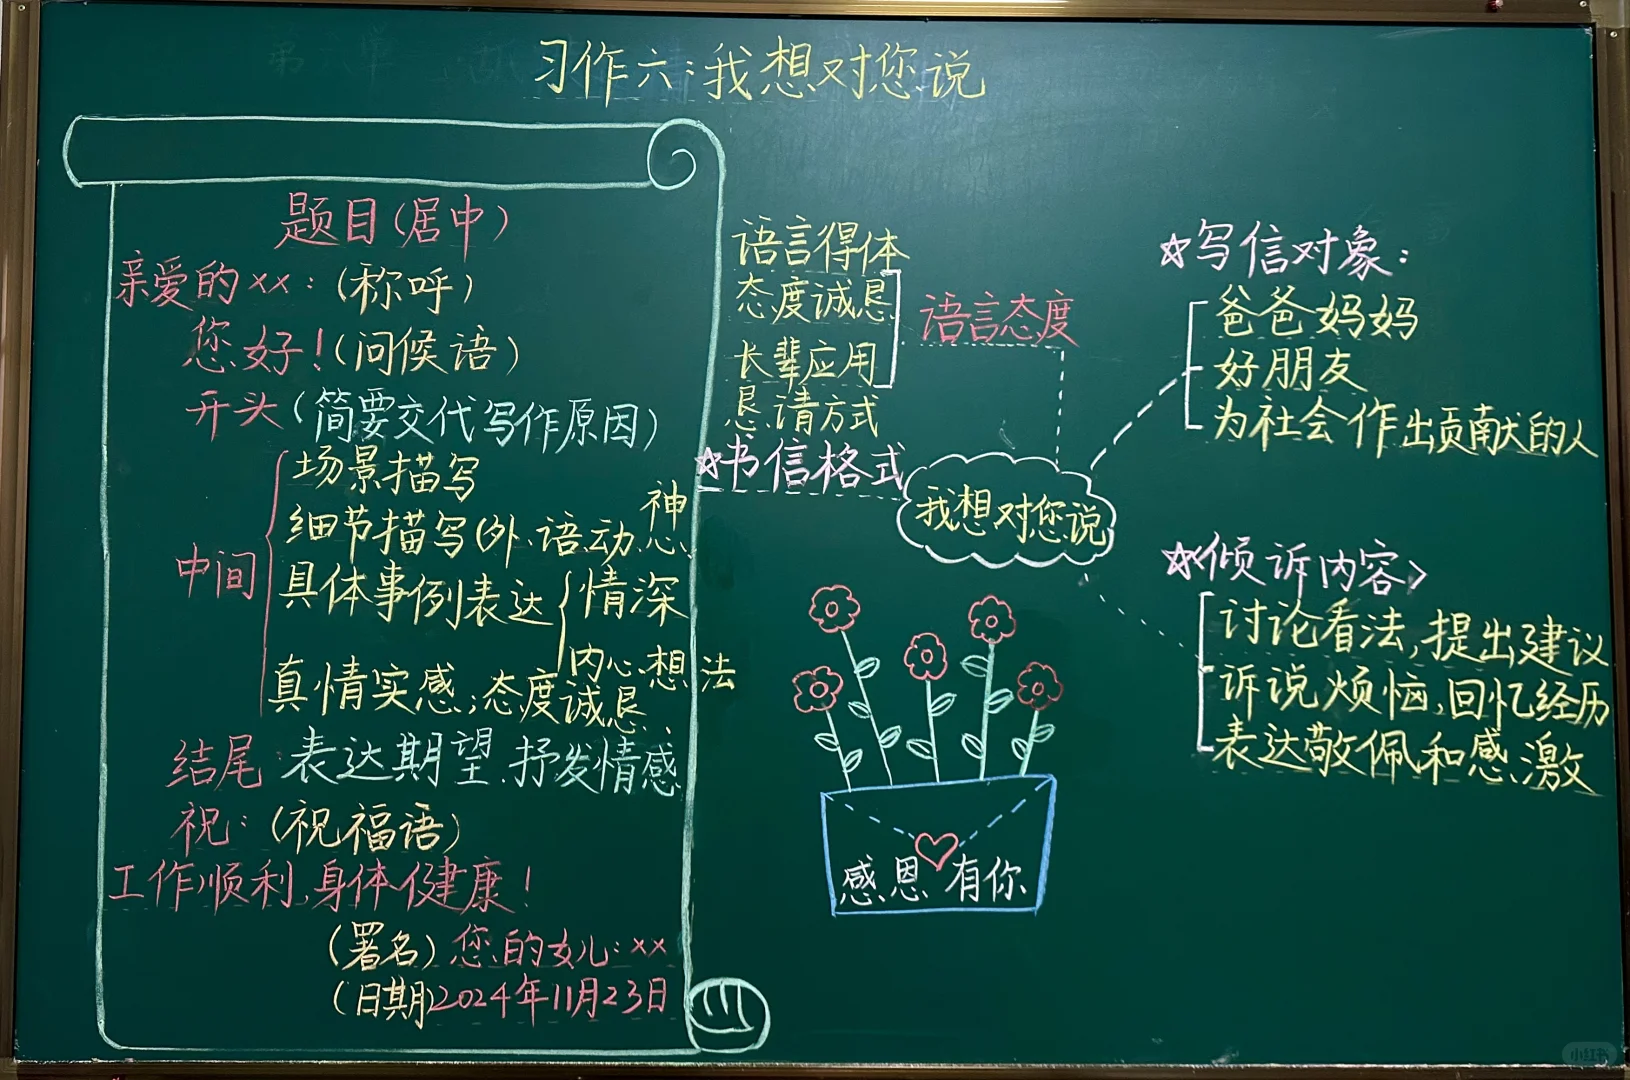 习作六：我想对您说
题目（居中）
亲爱的××：（称呼）
您好！（问候语）
开头（简要交代写作原因）
中间
场景描写
细节描写（外、语、动、神
态、
具体事例表达
情深
内心想法
真情实感；态度诚恳、
结尾：表达期望、抒发情感
祝：（祝福语）
工作顺利，身体健康！
（署名）您的女儿：××
（日期）2024年11月23日
语言得体
态度诚恳
长辈应用
恳请方式
语言态度
☆书信格式
我想对您说
☆写信对象：
爸爸妈妈
好朋友
为社会作出贡献的人
☆<倾诉内容>
讨论看法，提出建议
诉说烦恼，回忆经历
表达敬佩和感激
感恩有你
小红书